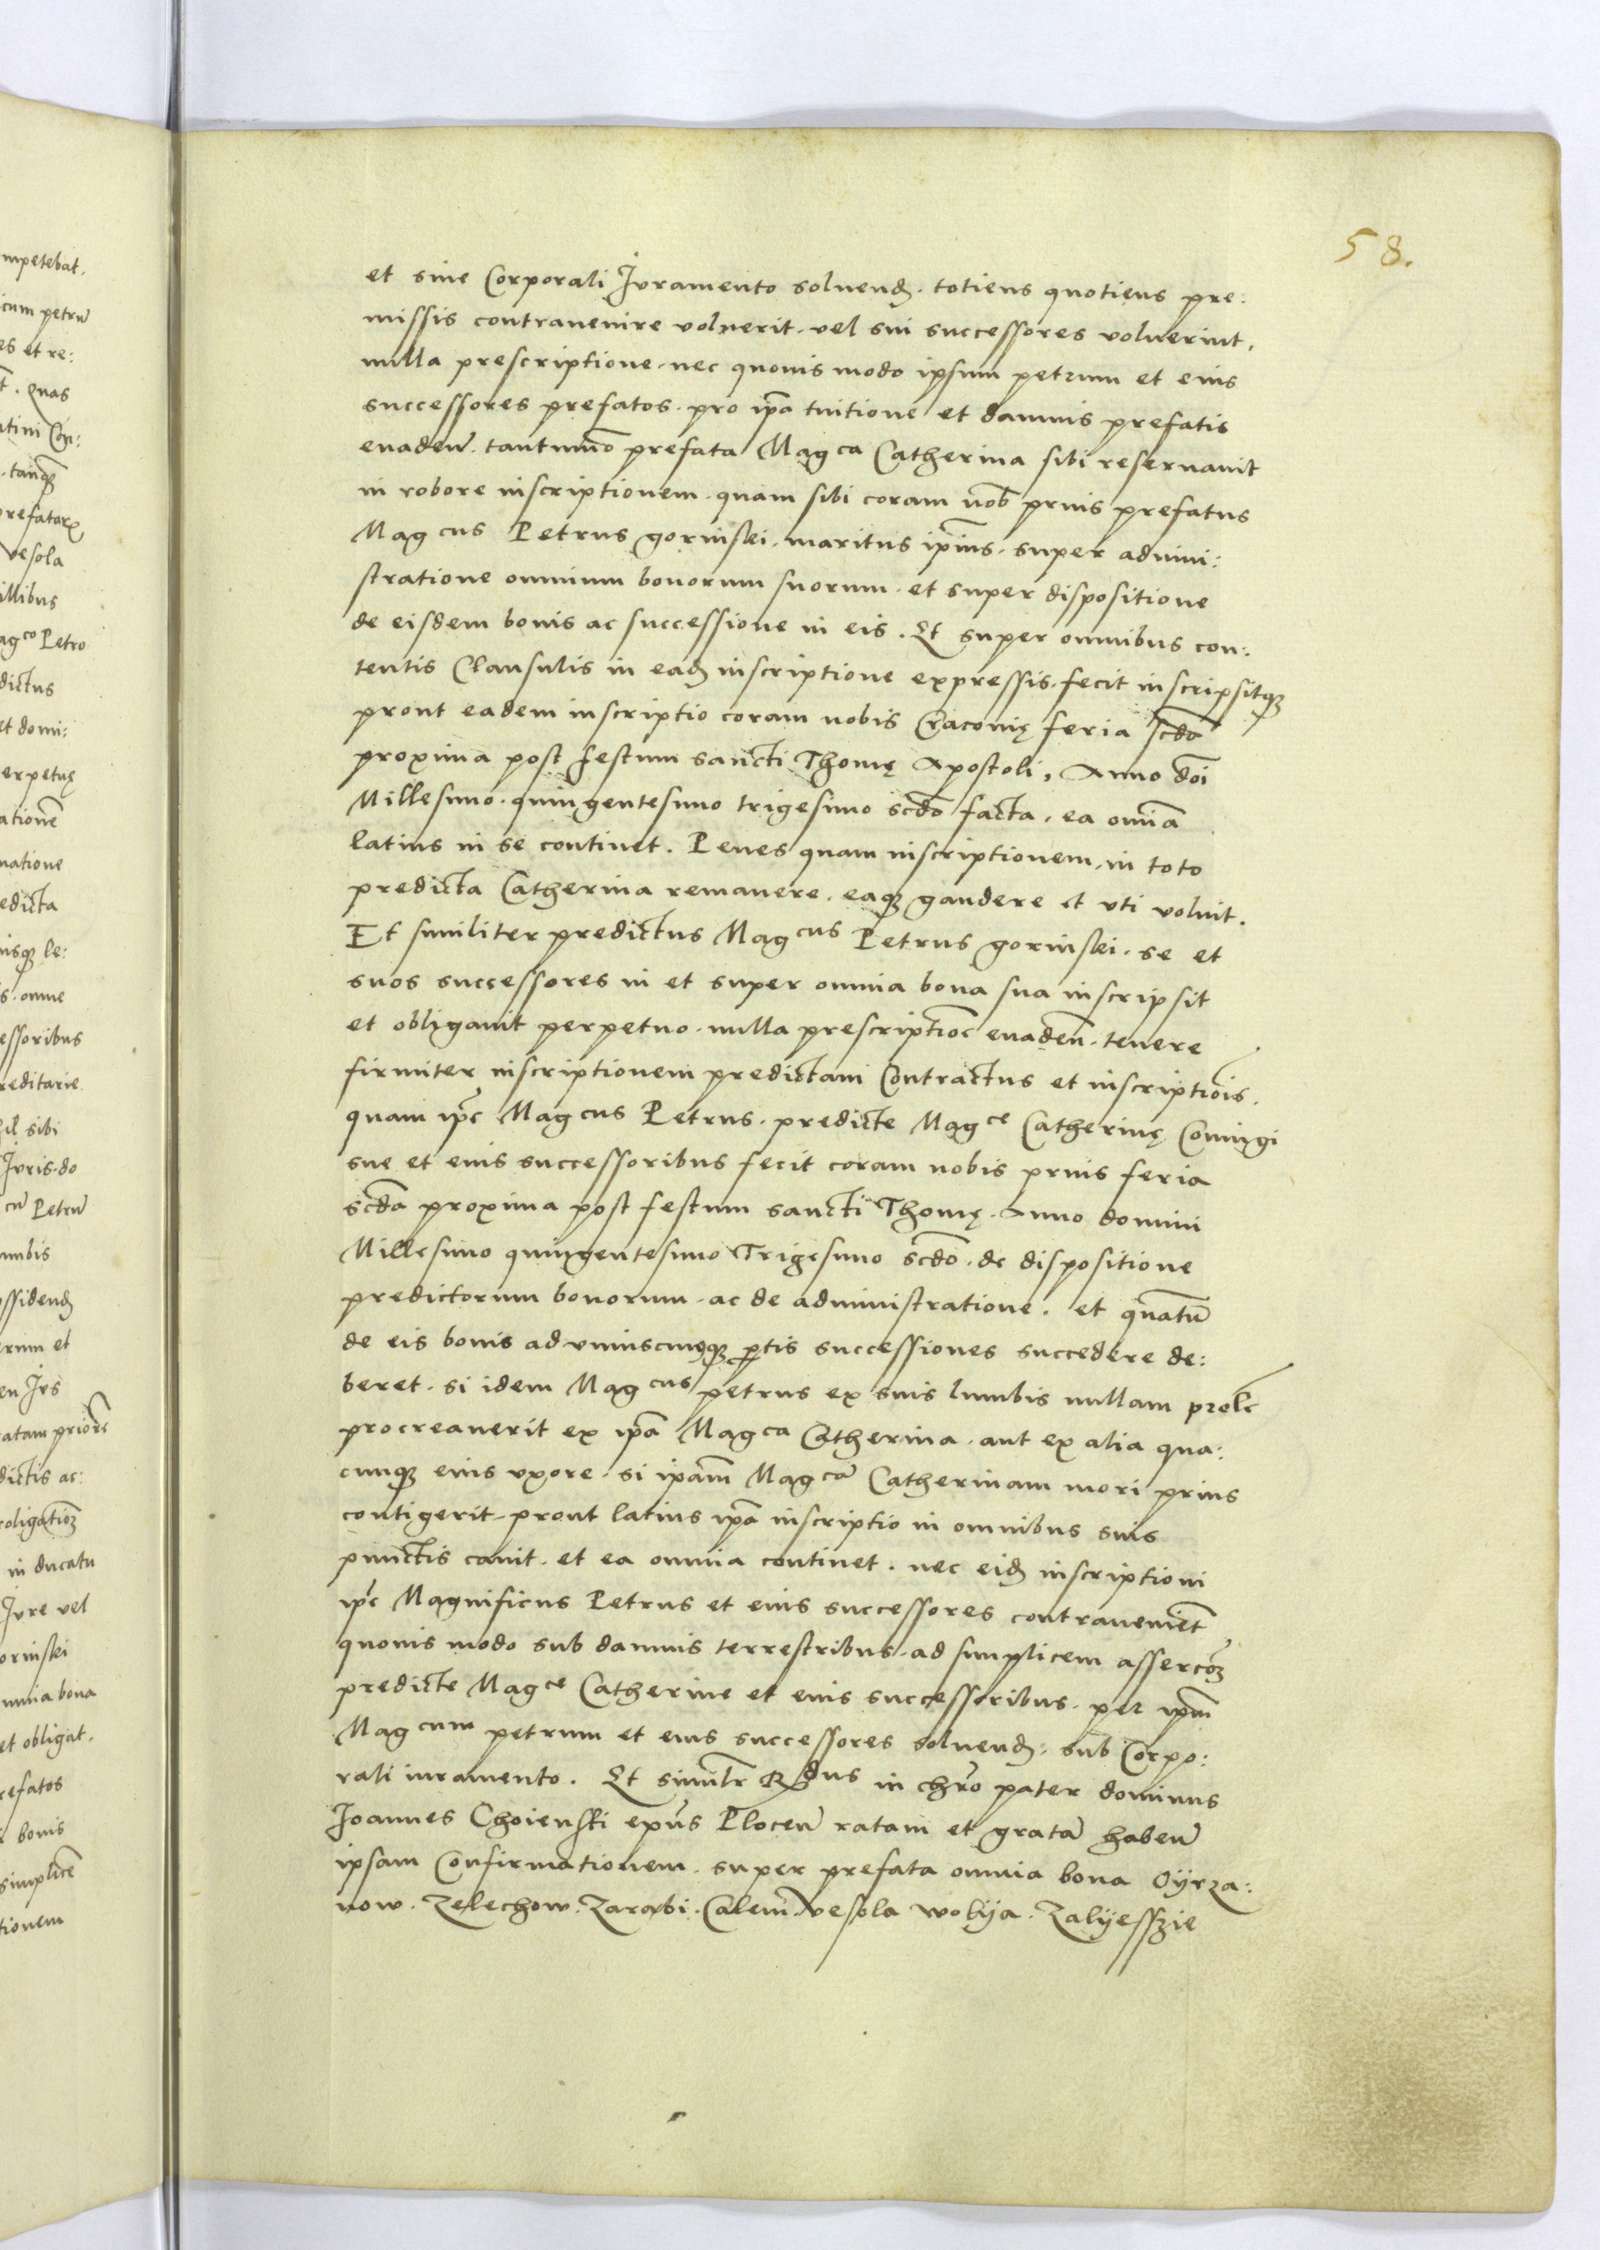 58.
et sine Corporali Juramento soluend. totiens quotiens pre:
missis contrauenire voluerit. vel sui successores voluerint.
nulla prescriptione. nec quouis modo ipsum petrum et eius
successores prefatos. pro ipa tuitione et damnis prefatis
euaden. tantummo prefata Magca Catherina sibi reseruauit
in robore inscriptionem. quam sibi coram nob prius prefatus
Magcus Petrus gorinski. maritus ipius. super admini:
stratione omnium bonorum suorum. et super dispositione
de eisdem bonis ac successione in eis. Et super omnibus con:
tentis Clausulis in ead inscriptione expressis. fecit inscripsitq
prout eadem inscriptio coram nobis Cracouię feria scda
proxima post festum sancti Thomę Apostoli, Anno doi
Millesimo. quingentesimo trigesimo scdo facta, ea omia
latius in se continet. Penes quam inscriptionem. in toto
predicta Catherina remanere. eaq gaudere et vti voluit.
Et similiter predictus Magcus Petrus gorinski. se et
suos successores in et super omnia bona sua inscripsit
et obligauit perpetuo. nulla prescriptioe euaden. tenere
firmiter inscriptionem predictam Contractus et inscriptiois.
quam ipe Magcus Petrus. predicte Magce Catherinę Coniugi
sue et eius successoribus fecit coram nobis prius feria
scda proxima post festum sancti Thomę. Anno domini
Millesimo quingentesimo Trigesimo scdo. de dispositione
predictorum bonorum. ac de administratione. et quatum
de eis bonis ad vniuscuiusq ptis successiones succedere de:
beret. si idem Magcus petrus ex suis lumbis nullam prole
procreauerit ex ipa Magca Catherina. aut ex alia qua:
cunq eius vxore. si ipam Magca Catherinam mori prius
contigerit. prout latius ipa inscriptio in omnibus suis
punctis canit. et ea omnia continet. nec eid inscriptioni
ipe Magnificus Petrus et eius successores contraueniet
quouis modo sub damnis terrestribus. ad simplicem assercoe
predicte Magce Catherine et eius successoribus. per ipm
Magcum petrum et eius successores soluend. sub Corpo:
rali iuramento. Et similr Rdus in chro pater dominus
Joannes Choienski epus Plocen ratam et grata haben
ipsam Confirmationem. super prefata omnia bona Oyrza:
now. Zelechow. Zarabi. Calem. vesola wolija. Zalijesszie